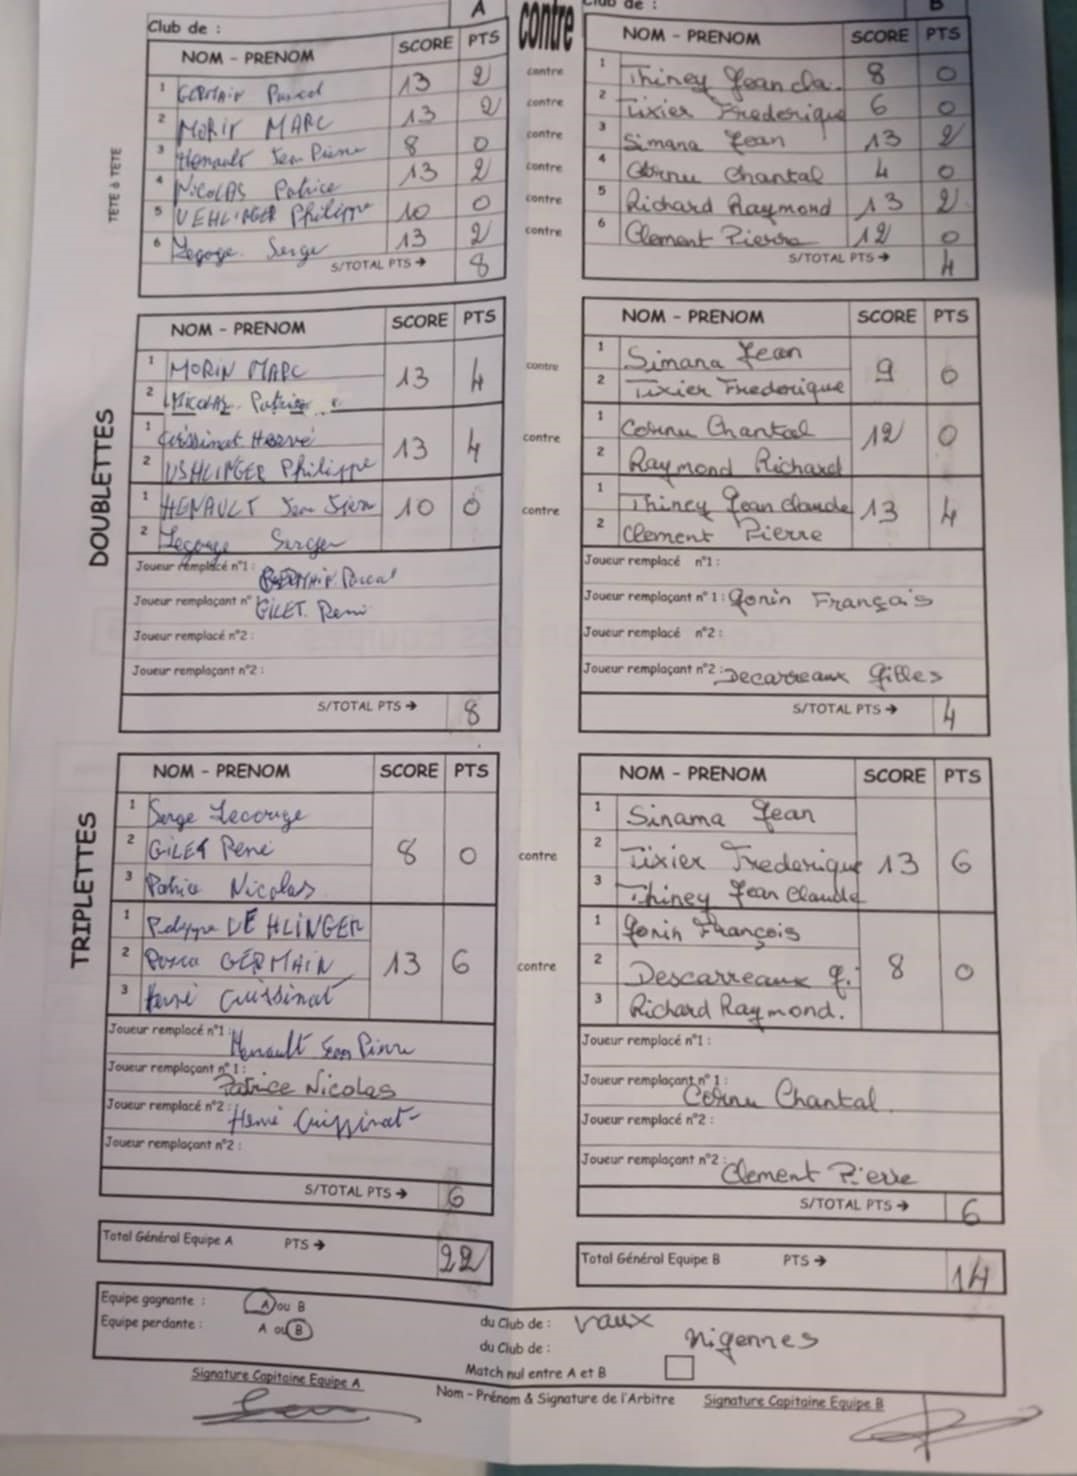 A contre Club de : B
Club de :
NOM - PRENOM SCORE PTS
NOM - PRENOM SCORE PTS
TETE à TETE
1 GERMAIN Pascal 13 2 contre 1 Thiney Jean Cla. 8 0
2 MORIN MARC 13 2 contre 2 Tixier Frederique 6 0
3 Henault Jean Pierre 8 0 contre 3 Simana Jean 13 2
4 NICOLAS Patrice 13 2 contre 4 Cornu Chantal 4 0
5 VEHLINGER Philippe 10 0 contre 5 Richard Raymond 13 2
6 Legouge Serge 13 2 contre 6 Clement Pierre 12 0
S/TOTAL PTS → 8
S/TOTAL PTS → 4
DOUBLETTES
NOM - PRENOM SCORE PTS
NOM - PRENOM SCORE PTS
1 MORIN MARC 13 4 contre 1 Simana Jean 9 0
2 NICOLAS Patrice 2 Tixier Frederique
1 Cuissinat Hervé 13 4 contre 1 Cornu Chantal 12 0
2 VEHLINGER Philippe 2 Raymond Richard
1 HENAULT Jean Pierre 10 0 contre 1 Thiney Jean claude 13 4
2 Legouge Serge 2 Clement Pierre
Joueur remplacé n°1 : GERMAIN Pascal
Joueur remplacé n°1 :
Joueur remplaçant n° GILET René
Joueur remplaçant n° 1 : Gonin Français
Joueur remplacé n°2 :
Joueur remplacé n°2 :
Joueur remplaçant n°2 :
Joueur remplaçant n°2 : Decarreaux Gilles
S/TOTAL PTS → 8
S/TOTAL PTS → 4
TRIPLETTES
NOM - PRENOM SCORE PTS
NOM - PRENOM SCORE PTS
1 Serge Lecouge 1 Sinama Jean
2 GILET René 8 0 contre 2 Tixier Frederique 13 6
3 Patrice Nicolas 3 Thiney Jean Claude
1 Philippe VEHLINGER 1 Gonin François
2 Pascal GERMAIN 13 6 contre 2 Descarreaux g. 8 0
3 Hervé Cuissinat 3 Richard Raymond.
Joueur remplacé n°1 : Henault Jean Pierre
Joueur remplacé n°1 :
Joueur remplaçant n° 1 : Patrice Nicolas
Joueur remplaçant n° 1 : Cornu Chantal
Joueur remplacé n°2 : Hervé Cuissinat
Joueur remplacé n°2 :
Joueur remplaçant n°2 :
Joueur remplaçant n°2 : Clement Pierre
S/TOTAL PTS → 6
S/TOTAL PTS → 6
Total Général Equipe A PTS → 22
Total Général Equipe B PTS → 14
Equipe gagnante : A ou B du Club de : Vaux
Equipe perdante : A ou B du Club de : Nigennes
Match nul entre A et B
Signature Capitaine Equipe A Nom - Prénom & Signature de l'Arbitre Signature Capitaine Equipe B